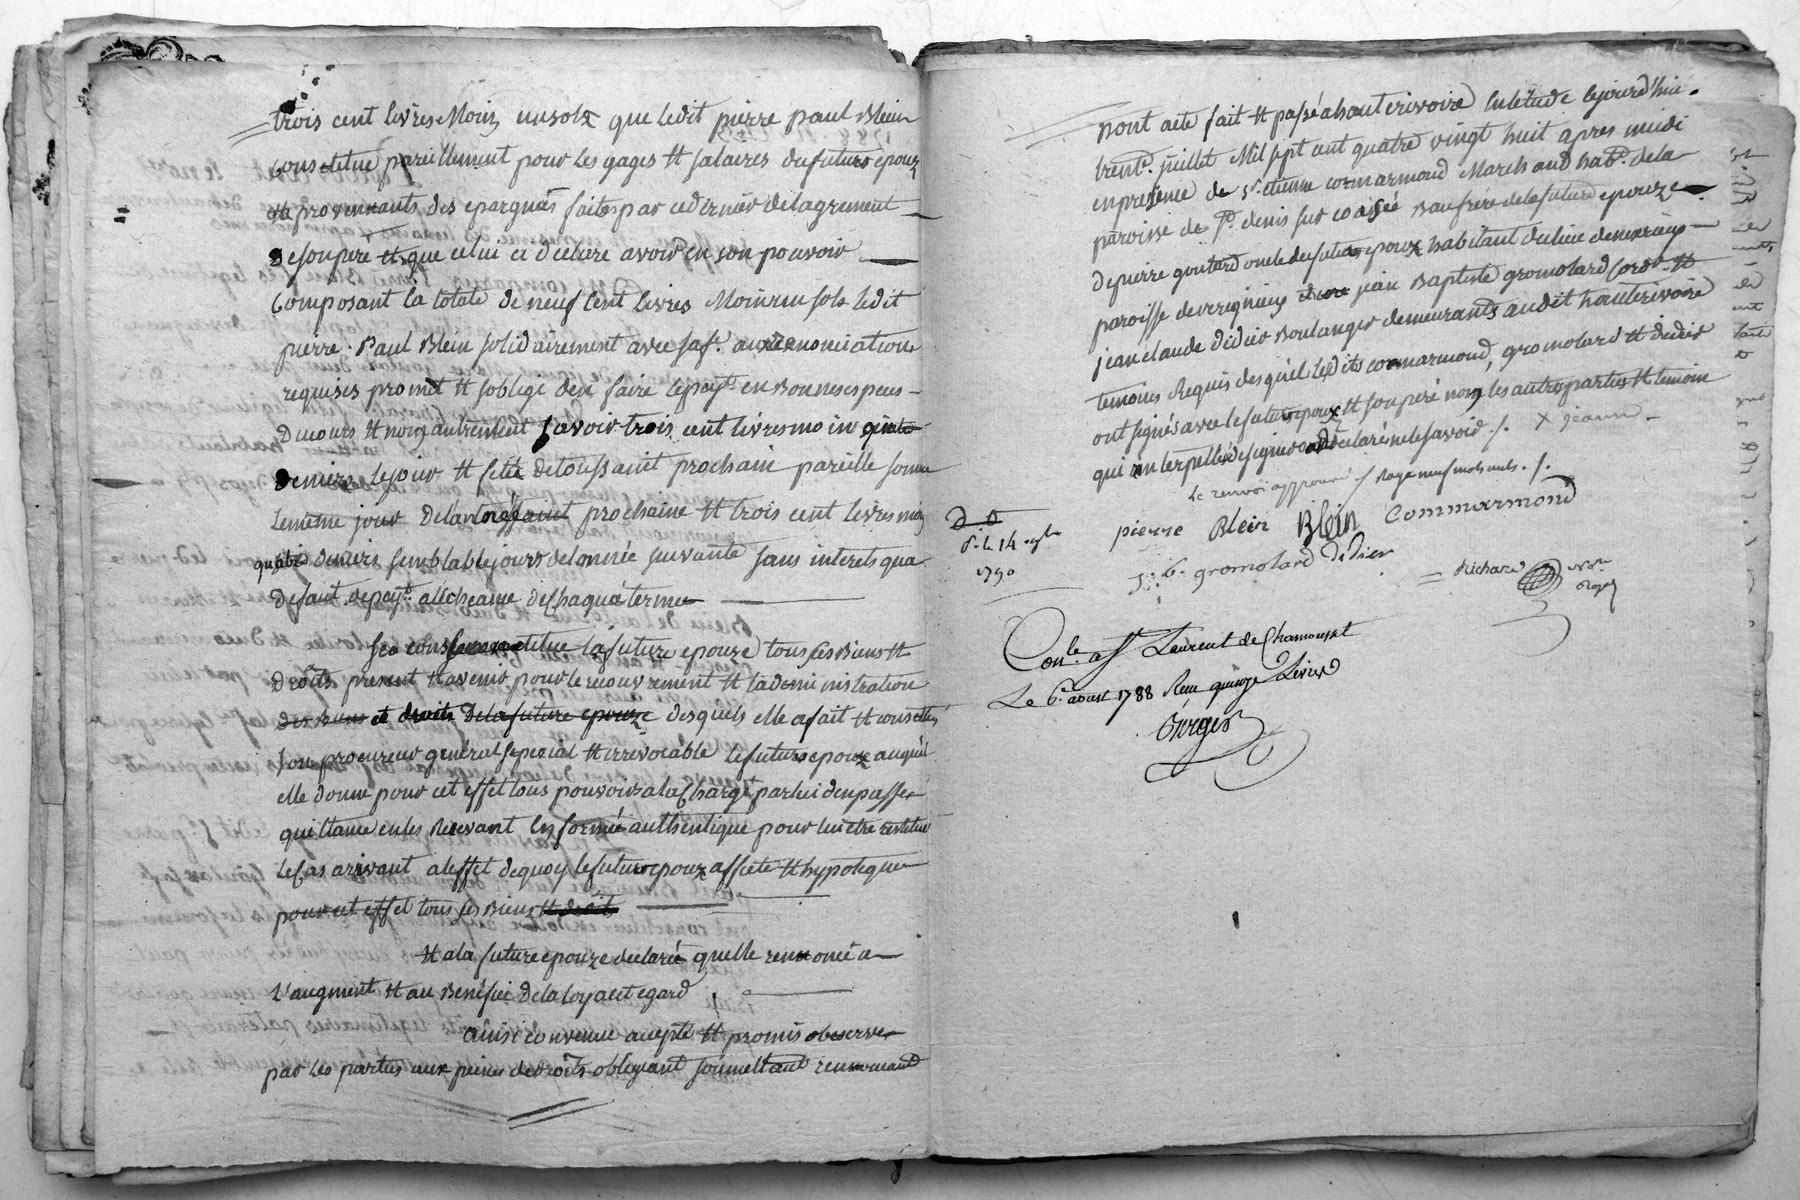 trois cent livres Moins un solz que ledit pierre paul Blein
Constitue pareillement pour les gages et salaires du futur epoux
et provennants des epargnes faites par ce dernier de lagrement
de son pere et que celui ci declare avoir en son pouvoir
Composant la totale de neuf cent livres Moins un solz ledit
pierre Paul Blein solidairement avec saf. aux renonciations
requises promet et soblige den faire le payt. en Bonnes especes
Ducours et non autrement savoir trois cent livres moins
Deniers le jour et fete de toussaint prochain pareille somme
le meme jour de lannée prochaine et trois cent livres moins
deniers semblable jour de lannée suivante sans interets qua
defaut de payt. a lecheance de chaque terme
se constitue la future epouze tous ses Biens et
Droits present et avenir pour le recouvrement et ladministration
des Biens et droits De la future epouze desquels elle a fait et constitué
son procureur general special et irrevocable le futur epoux auquel
elle donne pour cet effet tous pouvoirs a la Charge par lui den passer
quittance en les Recevant en forme authentique pour lui etre restitué
le Cas arrivant a leffet de quoy le futur epoux affecte et hypoteque
pour cet effet tous ses Biens et droits
Et a la future epouze declaré quelle rennoncé a
L'augment et au Benefice de la loy a cet egard
ainsi convenu accepté et promis observer
par les parties aux peines de droits obligeant soumettant rennoncant
pont acte fait et passé a hauterivoire en létude cejourdhui
trente juillet Mil sept cent quatre vingt huit apres midi
en presence de sr. etienne commarmond Marchand habt. de la
paroisse de st. denis sur coaise Baufrere de la future epouze
de pierre goutard oncle du futur epoux habitant du lieu de
paroisse de jean Baptiste gromolard Cordr. et
jean claude didier Boulanger demeurants audit hauterivoire
temoins Requis desquels lesdits commarmond, gromolard et didier
ont signés avec le futur epoux et son pere non les autres parties et temoin
qui enterpellés de signer ont declarés ne le savoir /. X jeanne
Le renvoi approuvé / Raye neuf mots nuls. /.
D. D
d. le 14
1790
pierre Blein Blein Commarmond
J. B. gromolard didier
Richard nore.
Conle. a St Laurent de Chamousset
Le 6e. aoust 1788 Recu quinze Livres